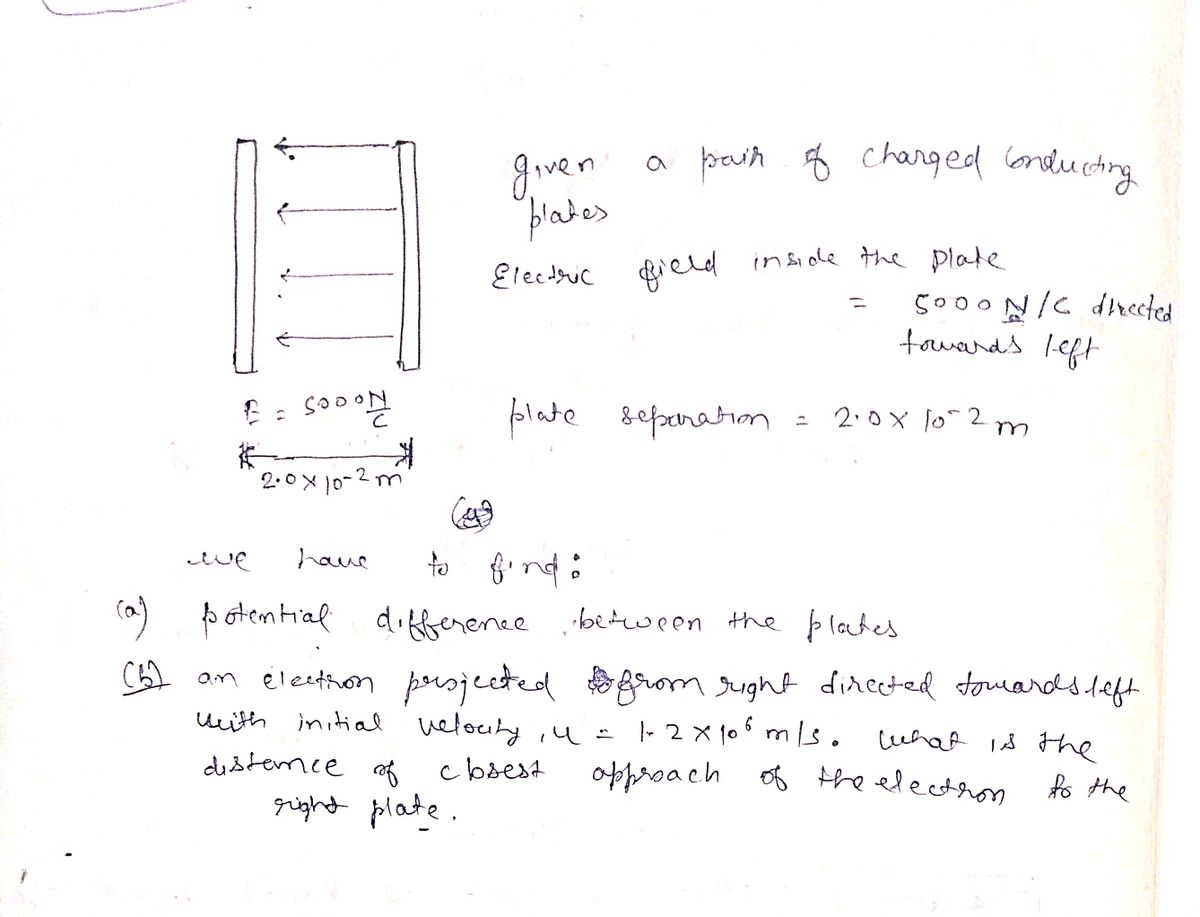 given a pair of charged conducting
plates
Electric field inside the plate
= 5000 N/C directed
towards left
E = 5000 N/C
plate separation = 2.0 × 10-2 m
2.0 × 10-2 m
we have to find:
(a) potential difference between the plates
(b) an electron projected from right directed towards left
with initial velocity, u = 1.2 × 10⁶ m/s. what is the
distance of closest approach of the electron to the
right plate.